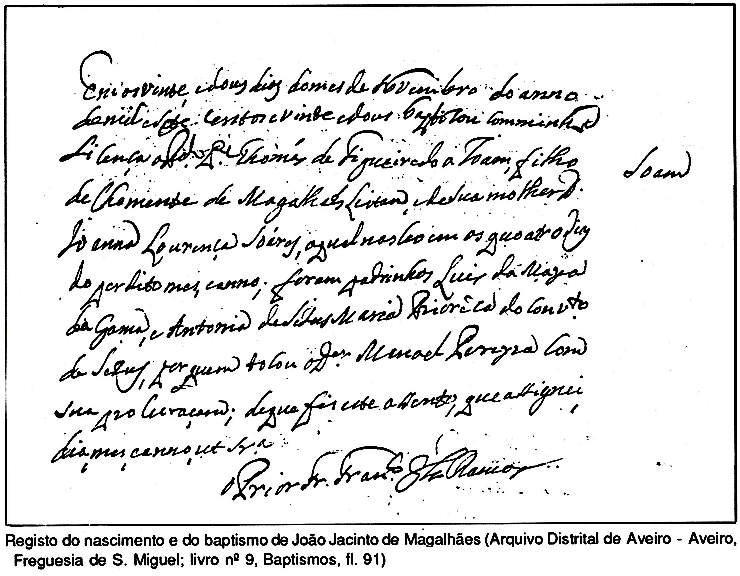 Em os vinte e dous dias do mes de Novembro do anno
de mil e sete centos e vinte e dous baptizou com minha
Licença o Thomás de Figueiredo a Joam, filho
Joam
de Clemente de Magalhães Leitam, e de sua molher D.
Joanna Lourença Soares, o qual nasceo em os quoatro dias
do perdito mes, e anno; foram padrinhos Luis da Maya
da Gama, e Antonia de Maria Priorêca do Convto
de por quem tocou o Manoel Pereyra Com
sua procuraçam; de que fis este assento, que assignei
dia, mes, e anno, ut sra
o Prior Fr. Franco Ramos
Registo do nascimento e do baptismo de João Jacinto de Magalhães (Arquivo Distrital de Aveiro - Aveiro,
Freguesia de S. Miguel; livro nº 9, Baptismos, fl. 91)